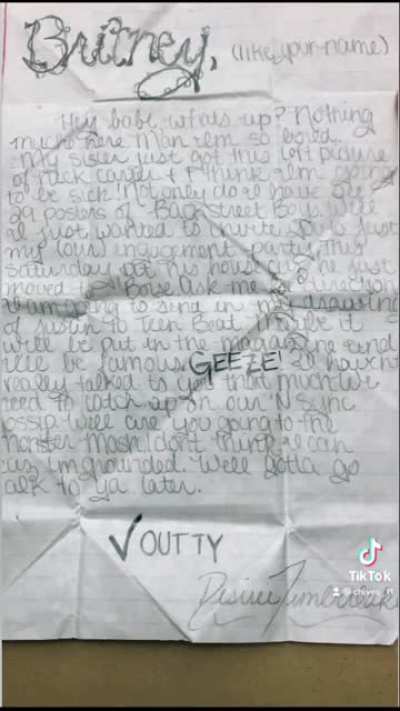 Britney, (like your name)
Hey babe, whats up? Nothing
much here Man I'm so bored.
My sister just got this 10ft picture
of Nick Carter + I think I'm going
to be sick! Not only do I have
29 posters of Backstreet Boys well
I just wanted to invite to Just
my (our) engagement party This
Saturday at his house cuz he just
moved to Boise ask me 4 directions
I am going to send in my drawing
of Justin to Teen Beat Maybe it
will be put in the magazine and
ill be famous. GEEZE! I havent
really talked to you that much We
need to catch up on our N'Sync
gossip Well are you going to the
Monster Mash I dont think I can
cuz Im grounded. Well gotta go
talk to ya later.
√ OUTTY
Desiree Timberlake
TikTok